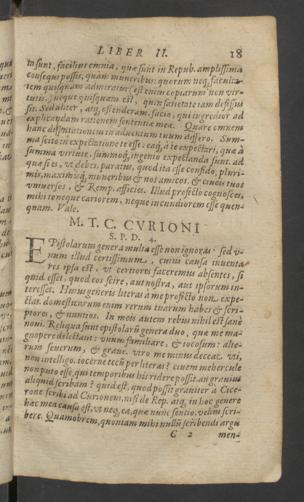 LIBER II. 18
in sunt, facilius omnia, quæ sunt in Repub. amplissima
consequi possis, quàm muneribus: quorum neq; faculta-
tem quisquam admiratur (est enim copiarum non vir-
tutis) neque quisquam est, quin satietate iam defessus
sit. Sed aliter, atq; ostenderam, facio, qui ingredior ad
explicandam rationem sententiæ meæ. Quare omnem
hanc disputationem in aduentum tuum differo. Sum-
ma scito in expectatione te esse: eaq; à te expectari, quæ à
summa virtute, summoq; ingenio expectanda sunt. ad
quæ si es, vt debes, paratus, quod ita esse confido, pluri-
mis, maximisq; muneribus & nos amicos, & ciueis tuos
vniuersos, & Remp. afficies. Illud profectò cognosces,
mihi te neque cariorem, neque iucundiorem esse quen-
quam. Vale.
M. T. C. CVRIONI
S. P. D. 4.
EPistolarum genera multa esse non ignoras: sed v-
num illud certissimum, cuius causa inuenta
res ipsa est, vt certiores faceremus absentes, si
quid esset, quod eos scire, aut nostra, aut ipsorum in-
teresset. Huius generis literas à me profectò non expe-
ctas. domesticarum enim rerum tuarum habes & scri-
ptores, & nuntios. In meis autem rebus nihil est sanè
noui. Reliqua sunt epistolarũ genera duo, quæ me ma-
gnopere delectant: vnum familiare, & iocosum: alte-
rum seuerum, & graue. vtro me minus deceat vti,
non intelligo. iocérne tecũ per literas? ciuem mehercule
non puto esse, qui temporibus his ridere possit. an grauius
aliquid scribam? quid est, quod possit grauiter à Cice-
rone scribi ad Curionem, nisi de Rep. atq; in hoc genere
hæc mea causa est, vt neq; ea, quæ nunc sentio, velim scri-
bere. Quamobrem, quoniam mihi nullũ scribendi argu
C 2 men-